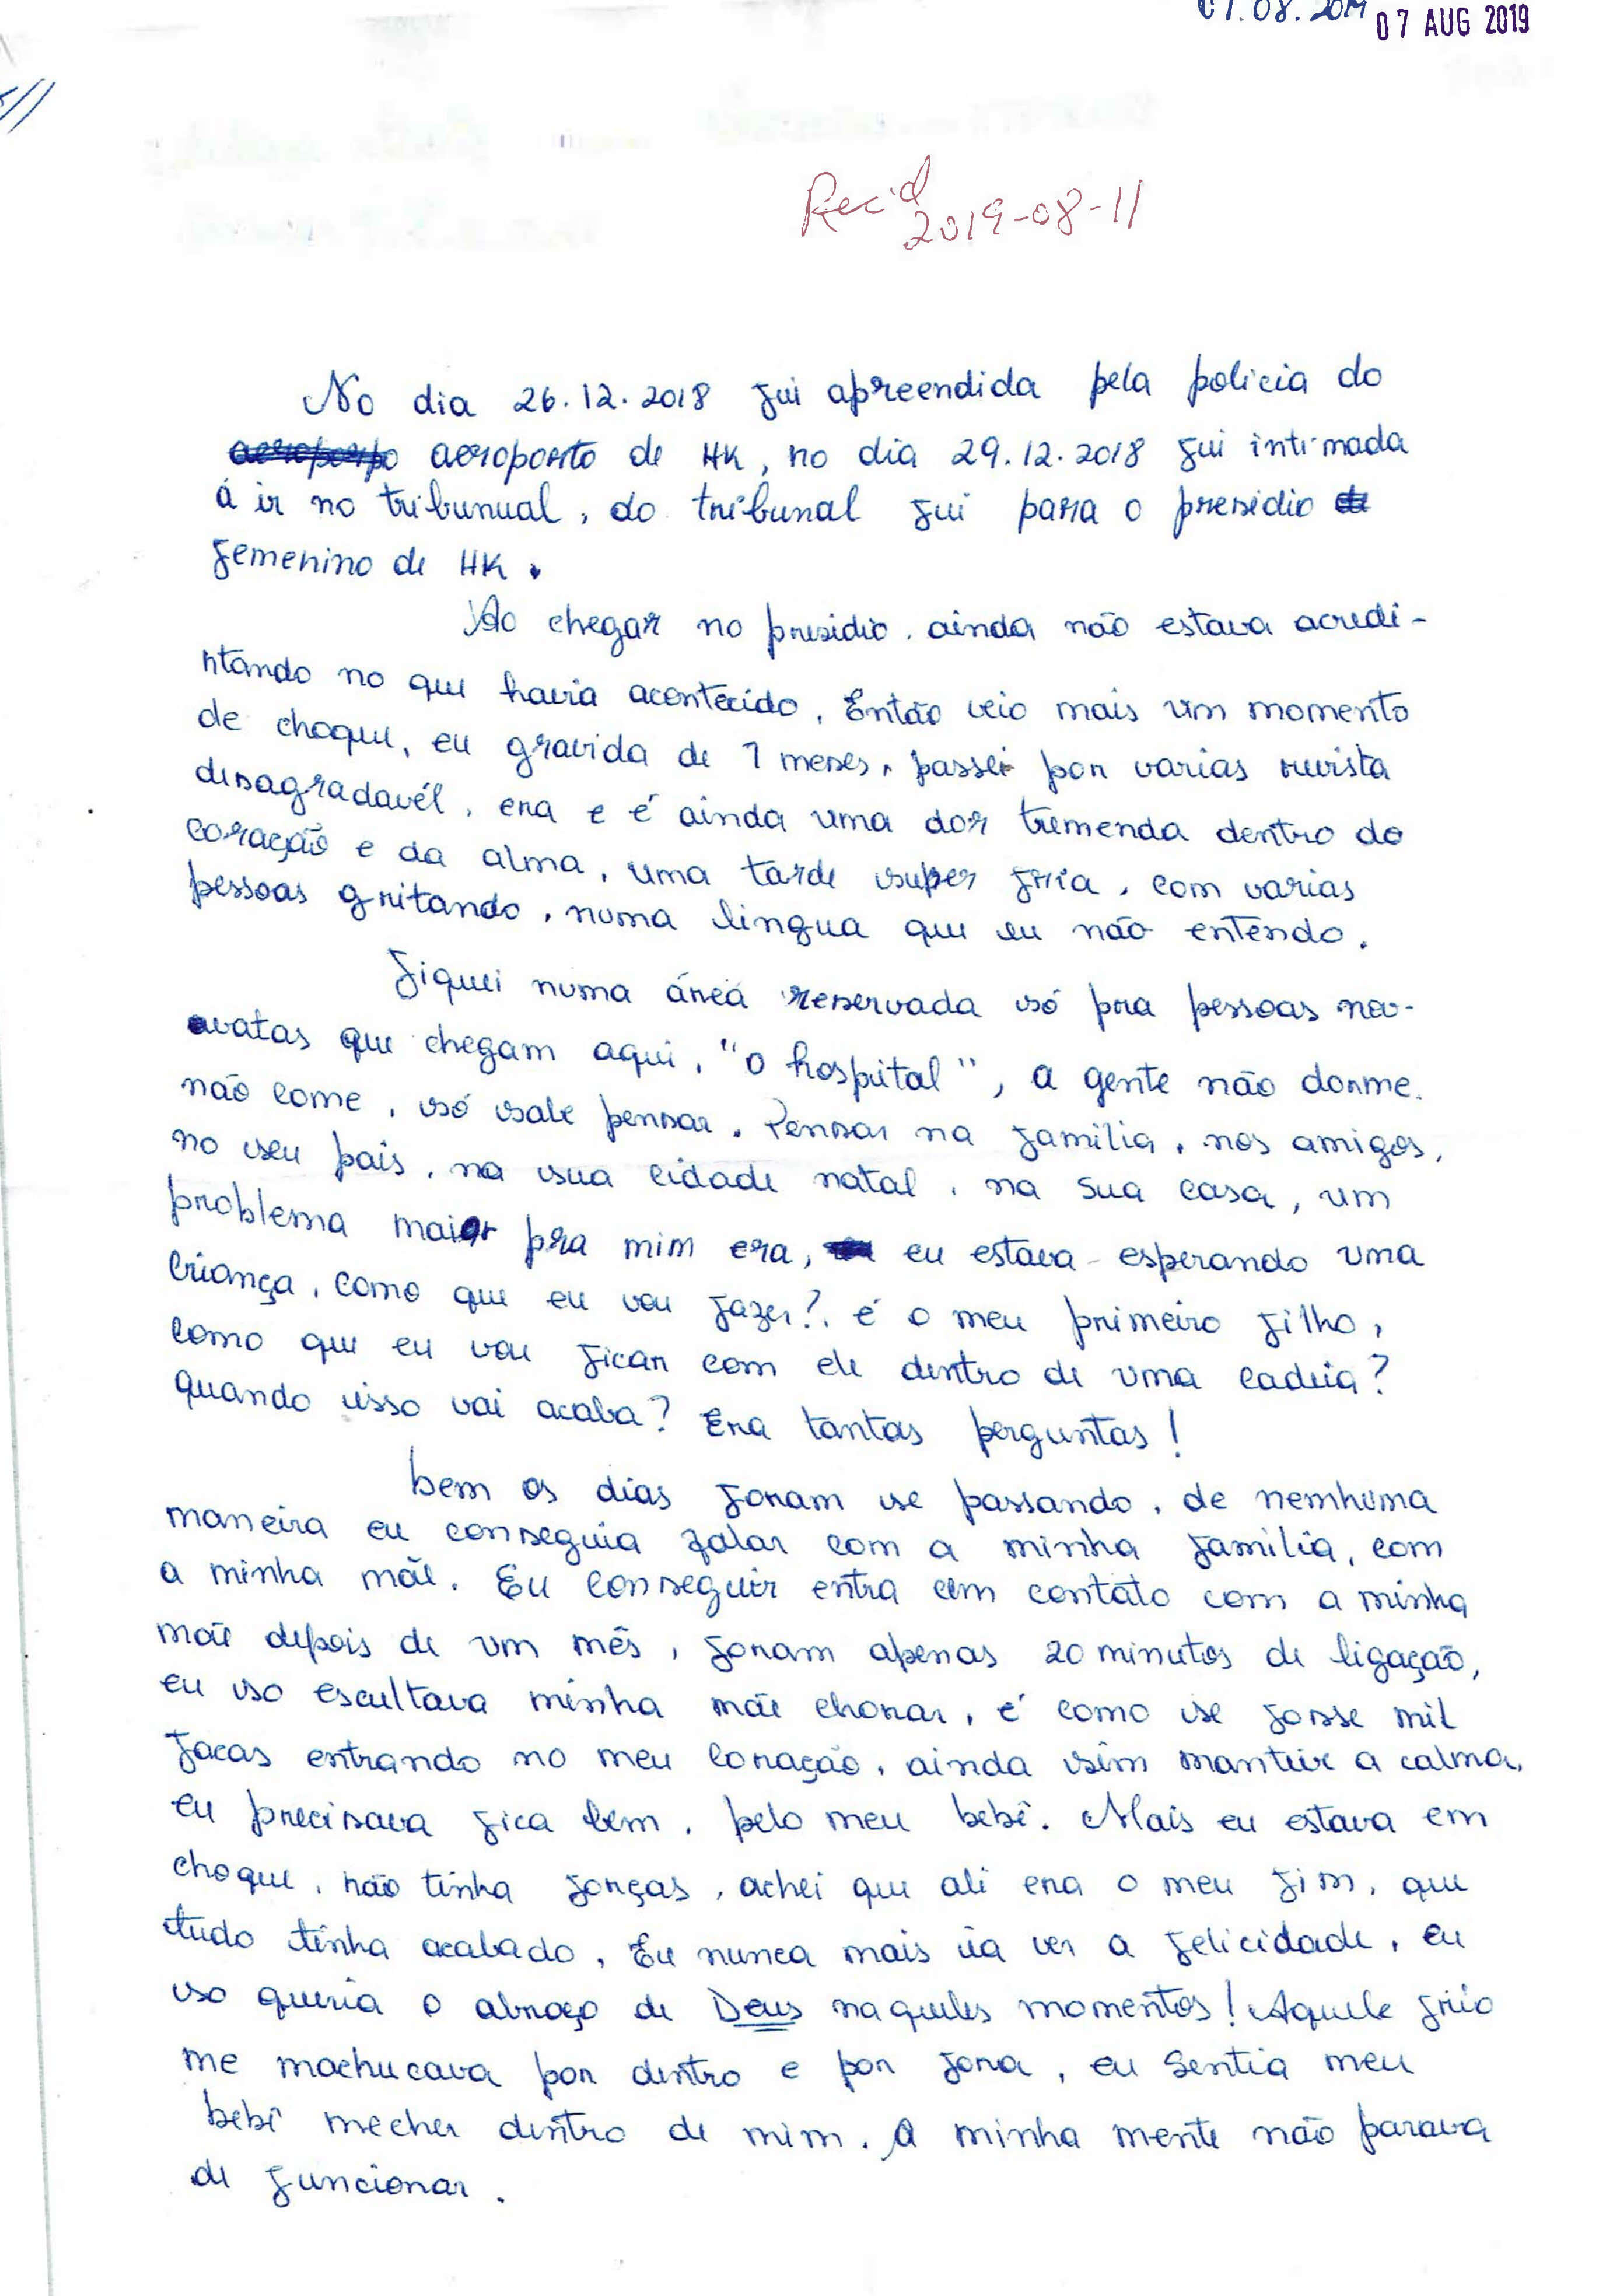 07.08.2019
07 AUG 2019
Rec'd
2019-08-11
No dia 26.12.2018 fui apreendida pela policia do
aeroporto de HK, no dia 29.12.2018 fui intimada
á ir no tribunual, do tribunal fui para o presidio
femenino de HK.
Ao chegar no presidio, ainda não estava acredi-
ntando no que havia acontecido, Então veio mais um momento
de choque, eu gravida de 7 meses, passei por varias revista
disagradavél, era e é ainda uma dor tremenda dentro do
coração e da alma, uma tarde super fria, com varias
pessoas gritando, numa lingua que eu não entendo.
Fiquei numa área reservada só pra pessoas nov-
vatas que chegam aqui, "o hospital", a gente não dorme.
não come, só sabe pensar. Pensar na familia, nos amigos,
no seu pais, na sua cidade natal, na sua casa, um
problema maior pra mim era, eu estava esperando uma
criança, como que eu vou fazer?, é o meu primeiro filho,
como que eu vou ficar com ele dentro de uma cadeia?
quando isso vai acaba? Era tantas perguntas!
bem os dias foram se passando, de nemhuma
maneira eu conseguia falar com a minha familia, com
a minha mãe. Eu conseguir entra em contato com a minha
mãe depois de um mês, foram apenas 20 minutos de ligação,
eu so escultava minha mãe chorar, é como se fosse mil
facas entrando no meu coração, ainda sim mantive a calma,
eu precisava fica bem, pelo meu bebê. Mais eu estava em
choque, não tinha forças, achei que ali era o meu fim, que
tudo tinha acabado, Eu nunca mais ia ver a felicidade, eu
so queria o abraço de Deus naqueles momentos! Aquele frio
me machucava por dentro e por fora, eu sentia meu
bebê mecher dentro de mim. A minha mente não parava
de funcionar.